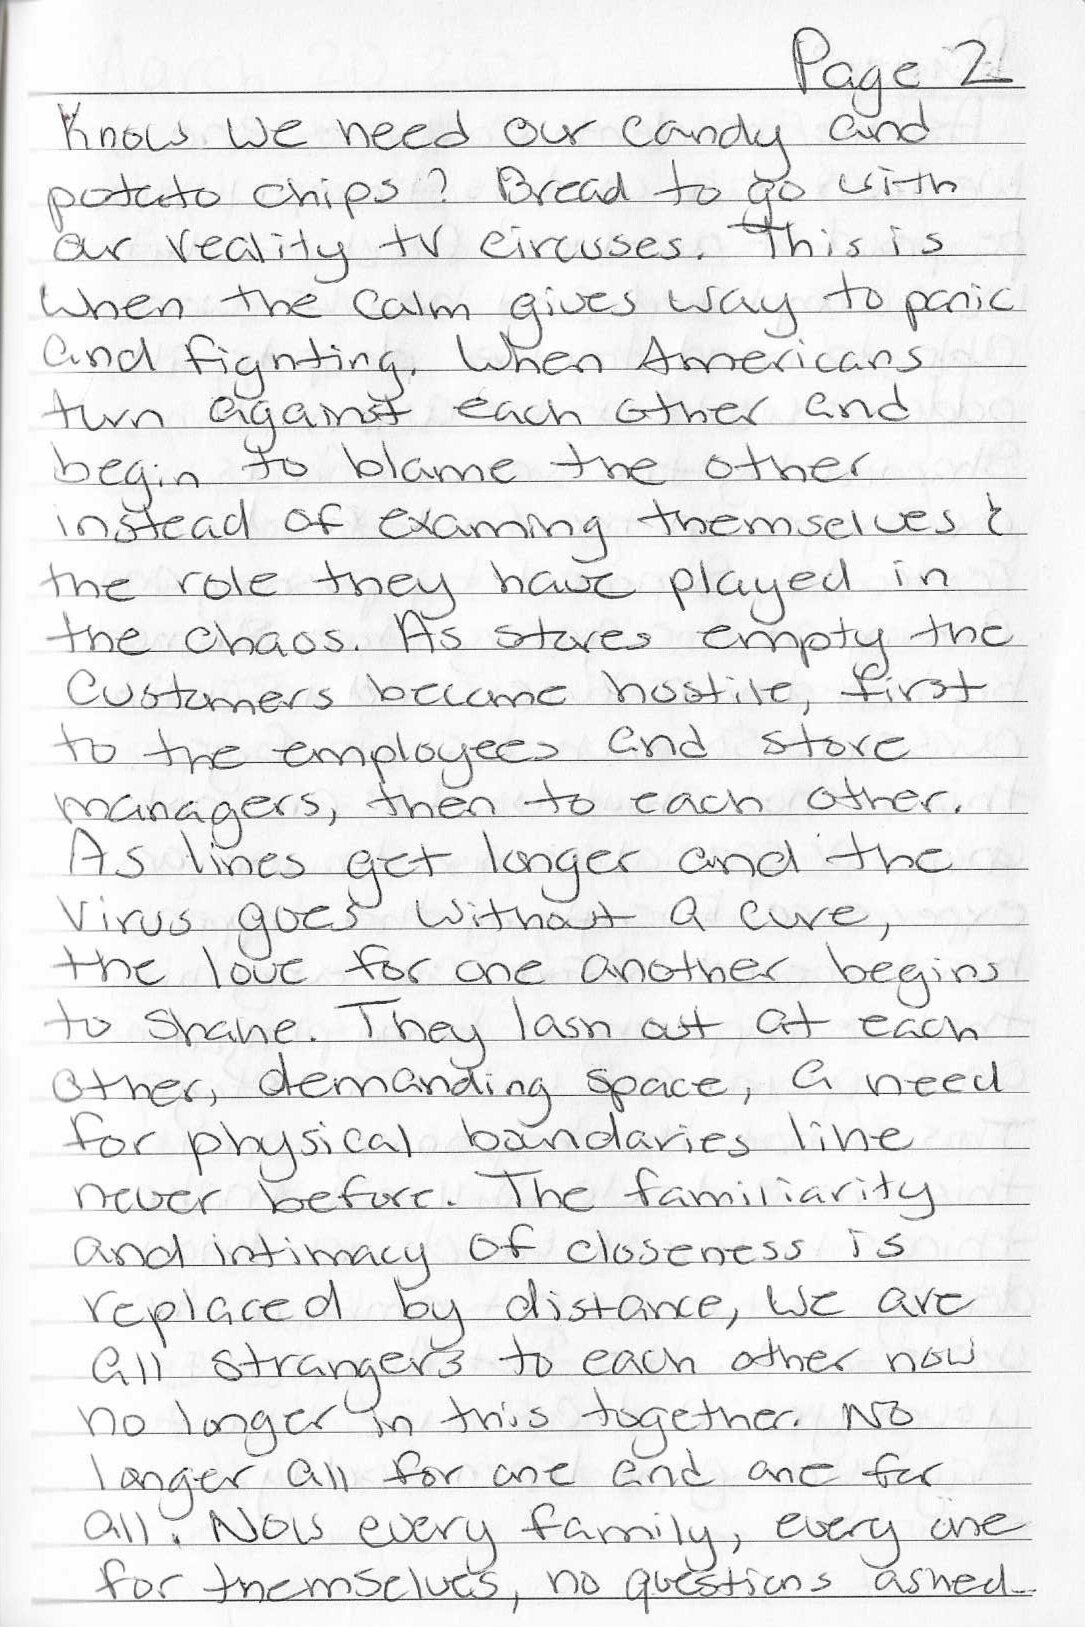 Page 2
Know we need our candy and
potato chips? Bread to go with
our reality tv circuses. This is
when the calm gives way to panic
and fighting. When Americans
turn against each other and
begin to blame the other
instead of examing themselves &
the role they have played in
the chaos. As stores empty the
customers become hostile, first
to the employees and store
managers, then to each other.
As lines get longer and the
virus goes without a cure,
the love for one another begins
to shake. They lash out at each
other, demanding space, a need
for physical boundaries like
never before. The familiarity
and intimacy of closeness is
replaced by distance, we are
all strangers to each other now
no longer in this together. No
longer all for one and one for
all. Now every family, every one
for themselves, no questions asked